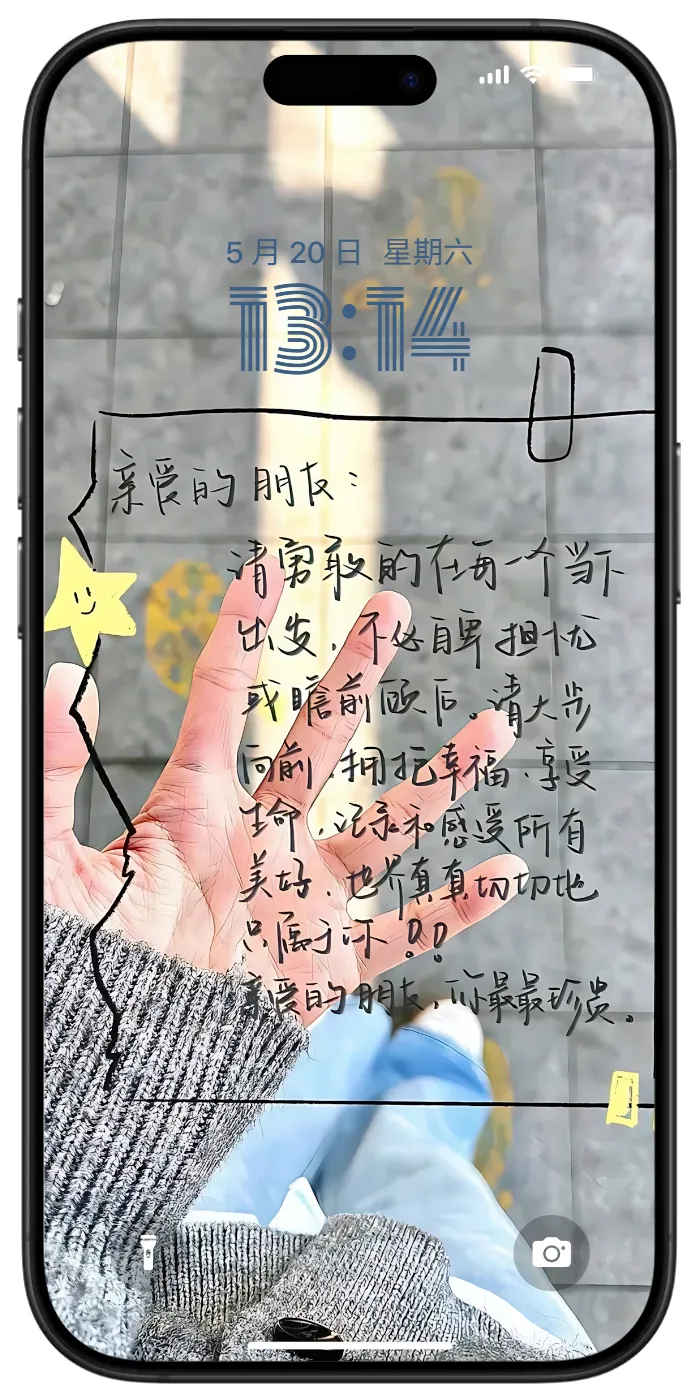 5月20日 星期六
13:14
亲爱的朋友：
请勇敢的在每一个当下
出发，不必自卑担忧
或瞻前顾后。请大步
向前，拥抱幸福，享受
生命，记录和感受所有
美好，也将真真切切地
只属于你！！
亲爱的朋友，你最最珍贵。